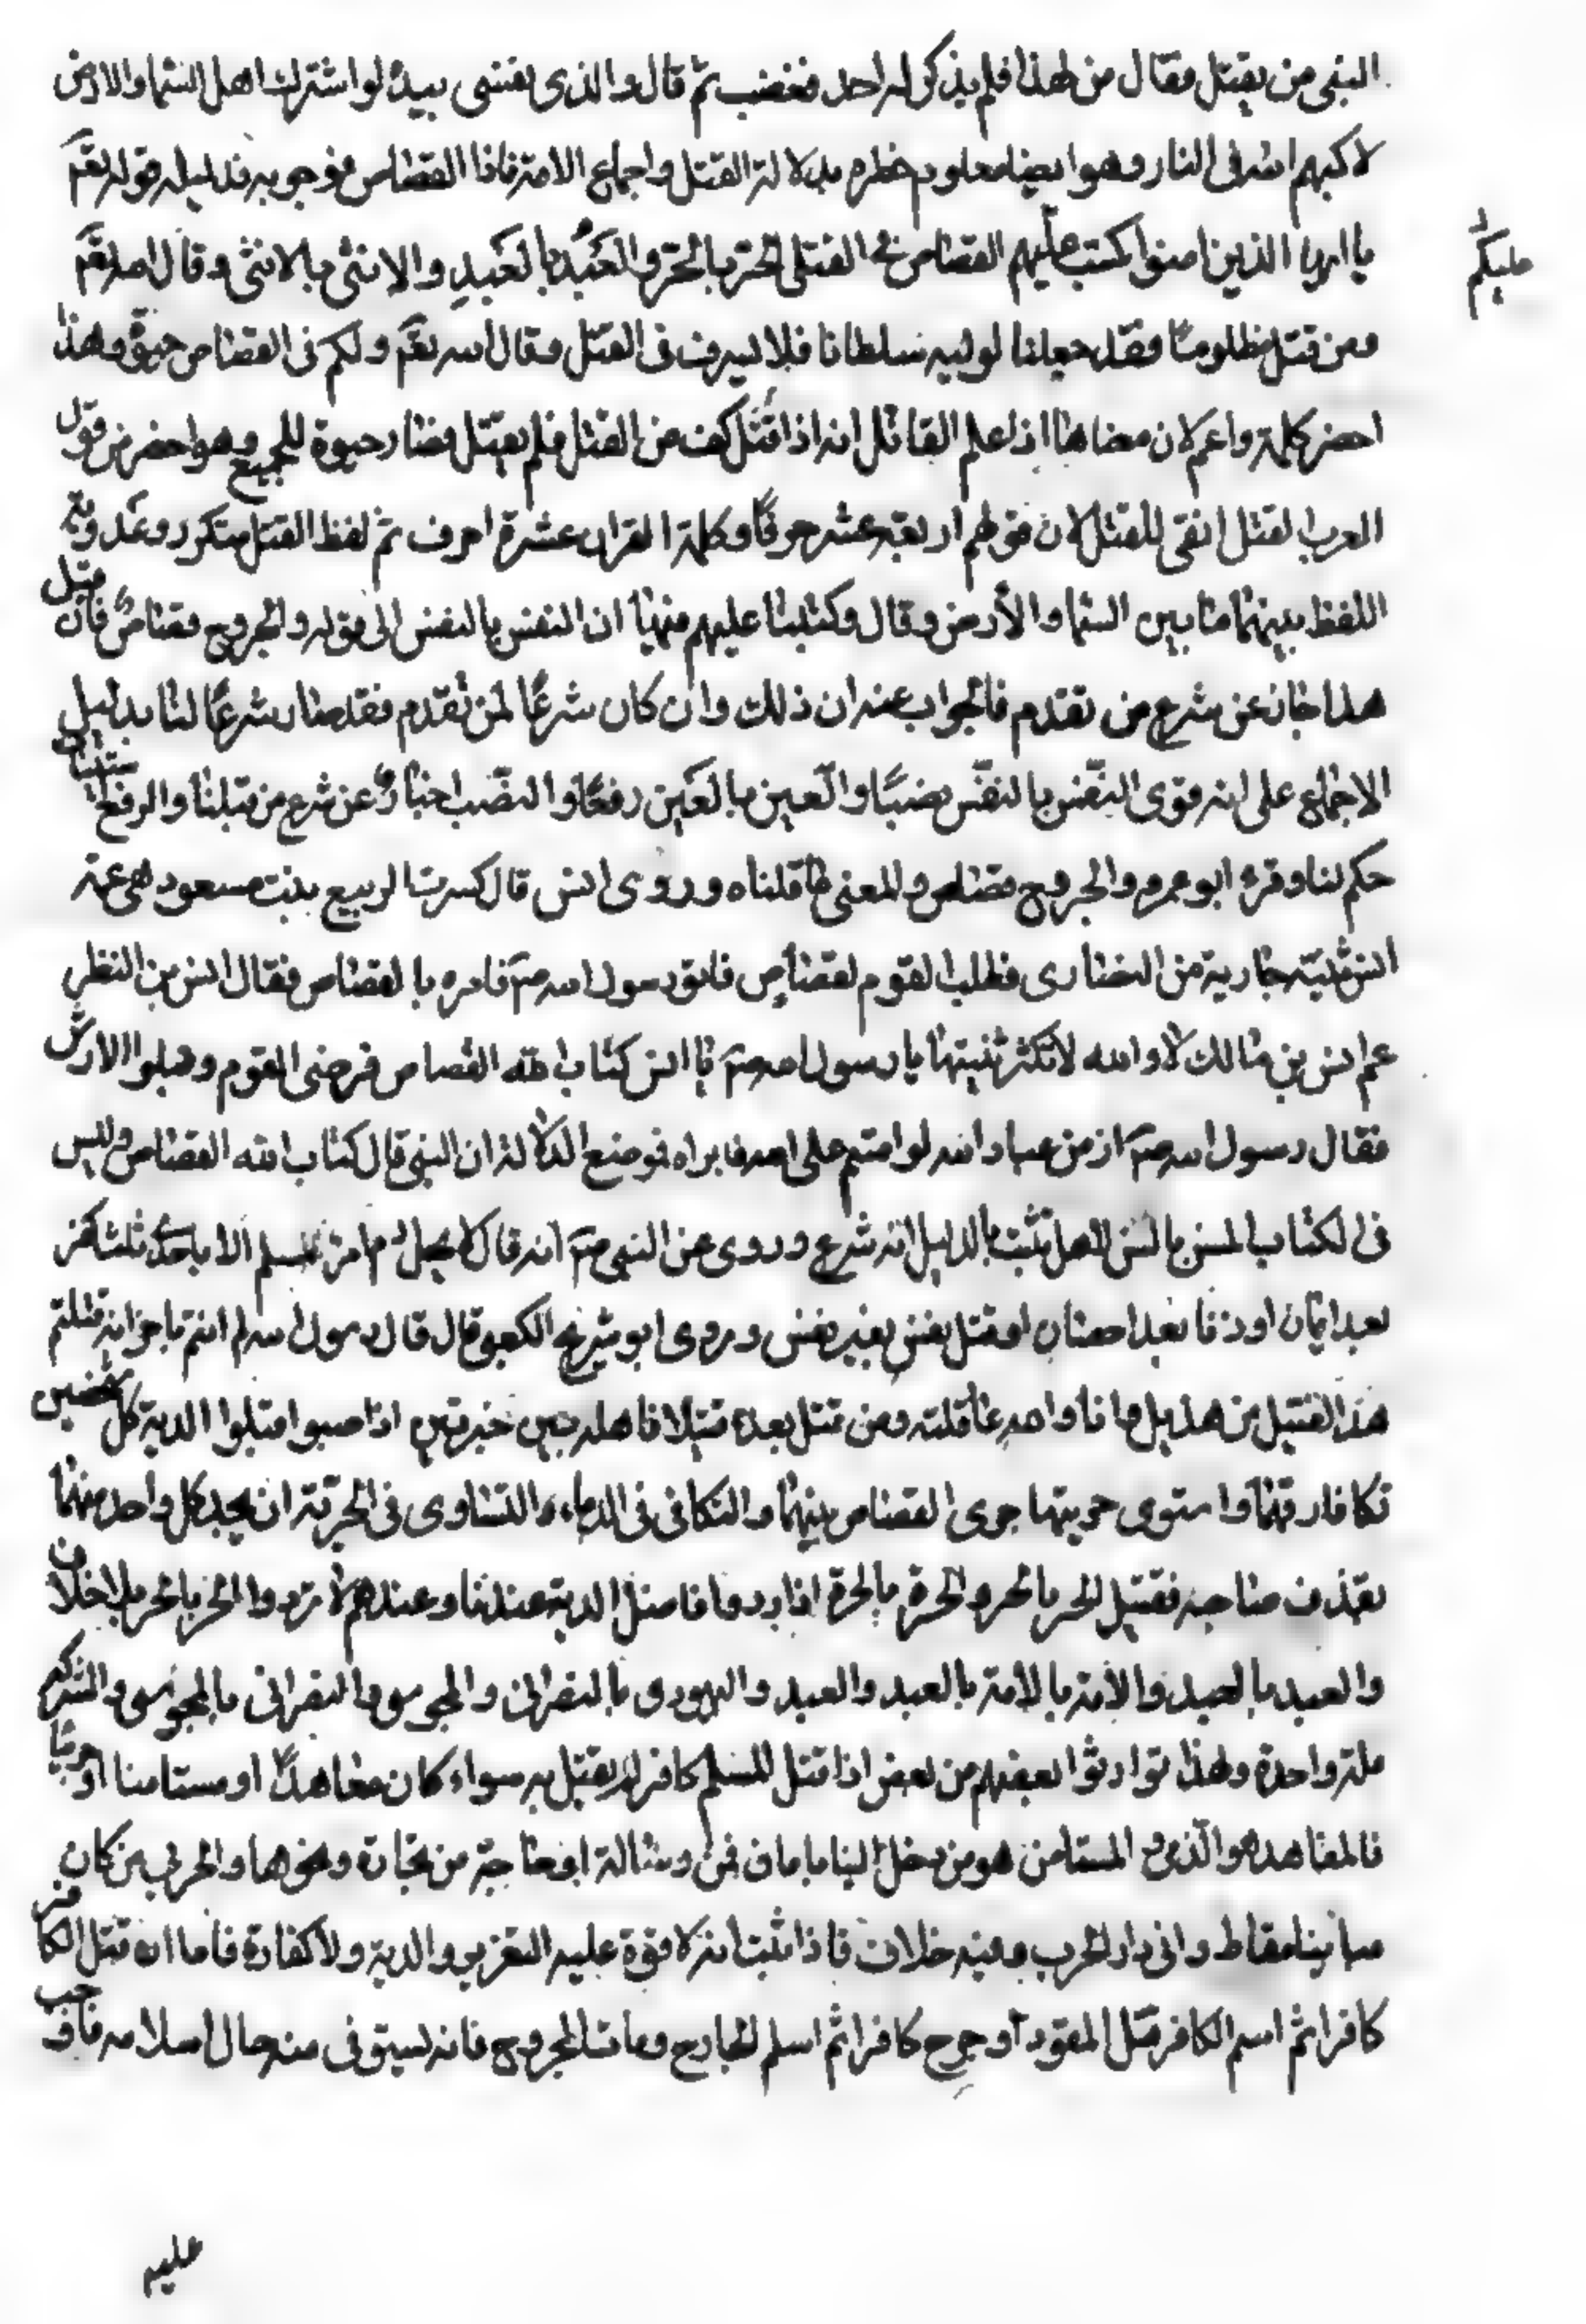 النبي من يقتل فقال من لهذا فلم يذكر له احد فغضب ثم قال والذي نفسي بيده لو اشترك اهل السما والارض
لاكبهم الله في النار وهو ايضا معلوم خطره بدلالة القتل واجماع الامة فاذا القصاص فوجوبه فدليله قوله تعم
يا ايها الذين امنوا كتب عليهم القصاص في القتلى الحر بالحر والعبد بالعبد والانثى بالانثى وقال الله تعم
عليكم
ومن قتل مظلوما فقد جعلنا لوليه سلطانا فلا يسرف في القتل وقال الله تعم ولكم في القصاص حيوة وهذا
احضر كلمة واعم لان معناها اذا علم القاتل انه اذا قتل كف من القتل فلم يقتل فصار حيوة للجميع وهو احضر من قول
العرب القتل انفى للقتل لان قولهم اربعة عشر حرفا وكلمة القران عشرة احرف ثم لفظ القتل متكرر وعذوبة
اللفظ بينهما ما بين السما والأرض وقال وكتبنا عليهم فيها ان النفس بالنفس الى قوله والجروح قصاص فان قيل
هذا خان عن شرع من تقدم فالجواب عنه ان ذلك وان كان شرعا لمن تقدم فقد صار شرعا لنا بدليل
الاجماع على انه قوى النفس بالنفس نصبا والعين بالعين رفعا والنصب اخبار عن شرع من قبلنا والرفع
حكم لنا وقرء ابو عمرو والجروح قصاص والمعنى ما قلناه وروى انس قال كسرت الربيع بنت مسعود هي عمة
انس ثنية جارية من النصارى فطلب القوم القصاص فاتو رسول الله صم فامره بالقصاص فقال انس بن النظر
عم انس بن مالك لا والله لا تكثر ثنيتها يا رسول الله صم يا انس كتاب الله القصاص فرضى القوم وقبلوا الارش
فقال رسول الله صم ان من عباد الله لو اقتم على الله فابراه فوضع الدلالة ان النبي قال كتاب الله القصاص وليس
في الكتاب السن بالسن الا هل تثبت بالدليل انه شرع وروى عن النبي صم انه قال لا يحل دم امرء مسلم الا باحد ثلث كفر
بعد ايمان او زنا بعد احصان او قتل نفس بغير نفس وروى ابو شريح الكعبي قال قال رسول الله لم انتم يا خزاعة قتلتم
هذا القتيل من هذيل وانا والله عاقلته ومن قتل بعده قتيلا فاهله بين خيرتين اذا احبوا قبلوا الدية كل شخصين
تكافا رقهما واستوى حريتها جرى القصاص بينهما والتكافى في الدماء والتساوى في الحرية ان يحد كل واحد منهما
بقذف صاحبه فقتيل الحر بالحر والحرة بالحرة اذا ردوا فاضل الدية عندنا وعندهم لا تردوا الحر بالحر بلا خلاف
والعبد بالعبد والامة بالامة بالعبد والعبد واليهودى بالنصرانى والمجوسى والنصرانى بالمجوسى والشرك
ملة واحدة ولهذا توارثوا بعضهم من بعض اذا قتل المسلم كافرا لم يقتل به سواء كان معاهدا او مستامنا او حربيا
فالمعاهد هو الذمي والمستامن هو من دخل الينا بامان في رسالة او حاجة من تجارة ونحوها والحربي من كان
مباينا مقاط وافى دار الحرب وفيه خلاف فاذا ثبت انه لا قوة عليه التعزير والدية ولا كفارة فاما ان قتل الكافر
كافرا ثم اسم الكافر قتل المقود او جرح كافرا ثم اسلم الجارح ومات المجروح فانه يستوفى منه حال اسلامه فاوجب
عليه